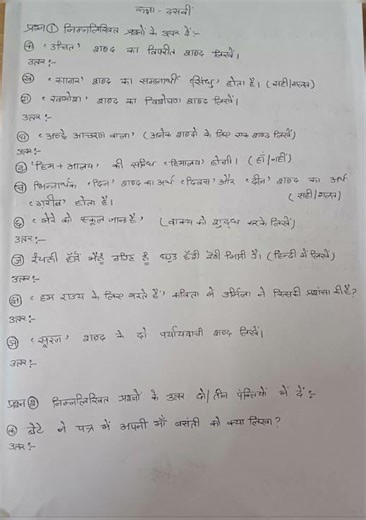 कक्षा - दसवीं
प्रश्न ① निम्नलिखित प्रश्नों के उत्तर दें :-
'उचित' शब्द का विपरीत शब्द लिखें।
उत्तर :-
'सागर' शब्द का समानार्थी 'सिंधु' होता है। (सही/गलत)
शब्द का विशेषण शब्द लिखें।
उत्तर :-
'अच्छे आचरण वाला' (अनेक शब्दों के लिए एक शब्द लिखें)
उत्तर :-
'हिम + आलय' की संधि 'हिमालय' होगी। (हाँ/नहीं)
भिन्नार्थक 'दिन' शब्द का अर्थ 'दिवस' और 'दीन' शब्द का अर्थ
'गरीब' होता है। (सही/गलत)
'मेरे को स्कूल जाना है' (वाक्य को शुद्ध करके लिखें)
उत्तर :-
(हिन्दी में लिखें)
उत्तर :-
'हम राज्य के लिए मरते हैं' कविता में उर्मिला ने किसकी प्रशंसा की है?
उत्तर :-
'सूरज' शब्द के दो पर्यायवाची शब्द लिखें।
उत्तर :-
प्रश्न ② निम्नलिखित प्रश्नों के उत्तर दो/तीन पंक्तियों में दें :-
बेटे ने पत्र में अपनी माँ बसंती को क्या लिखा?
उत्तर :-